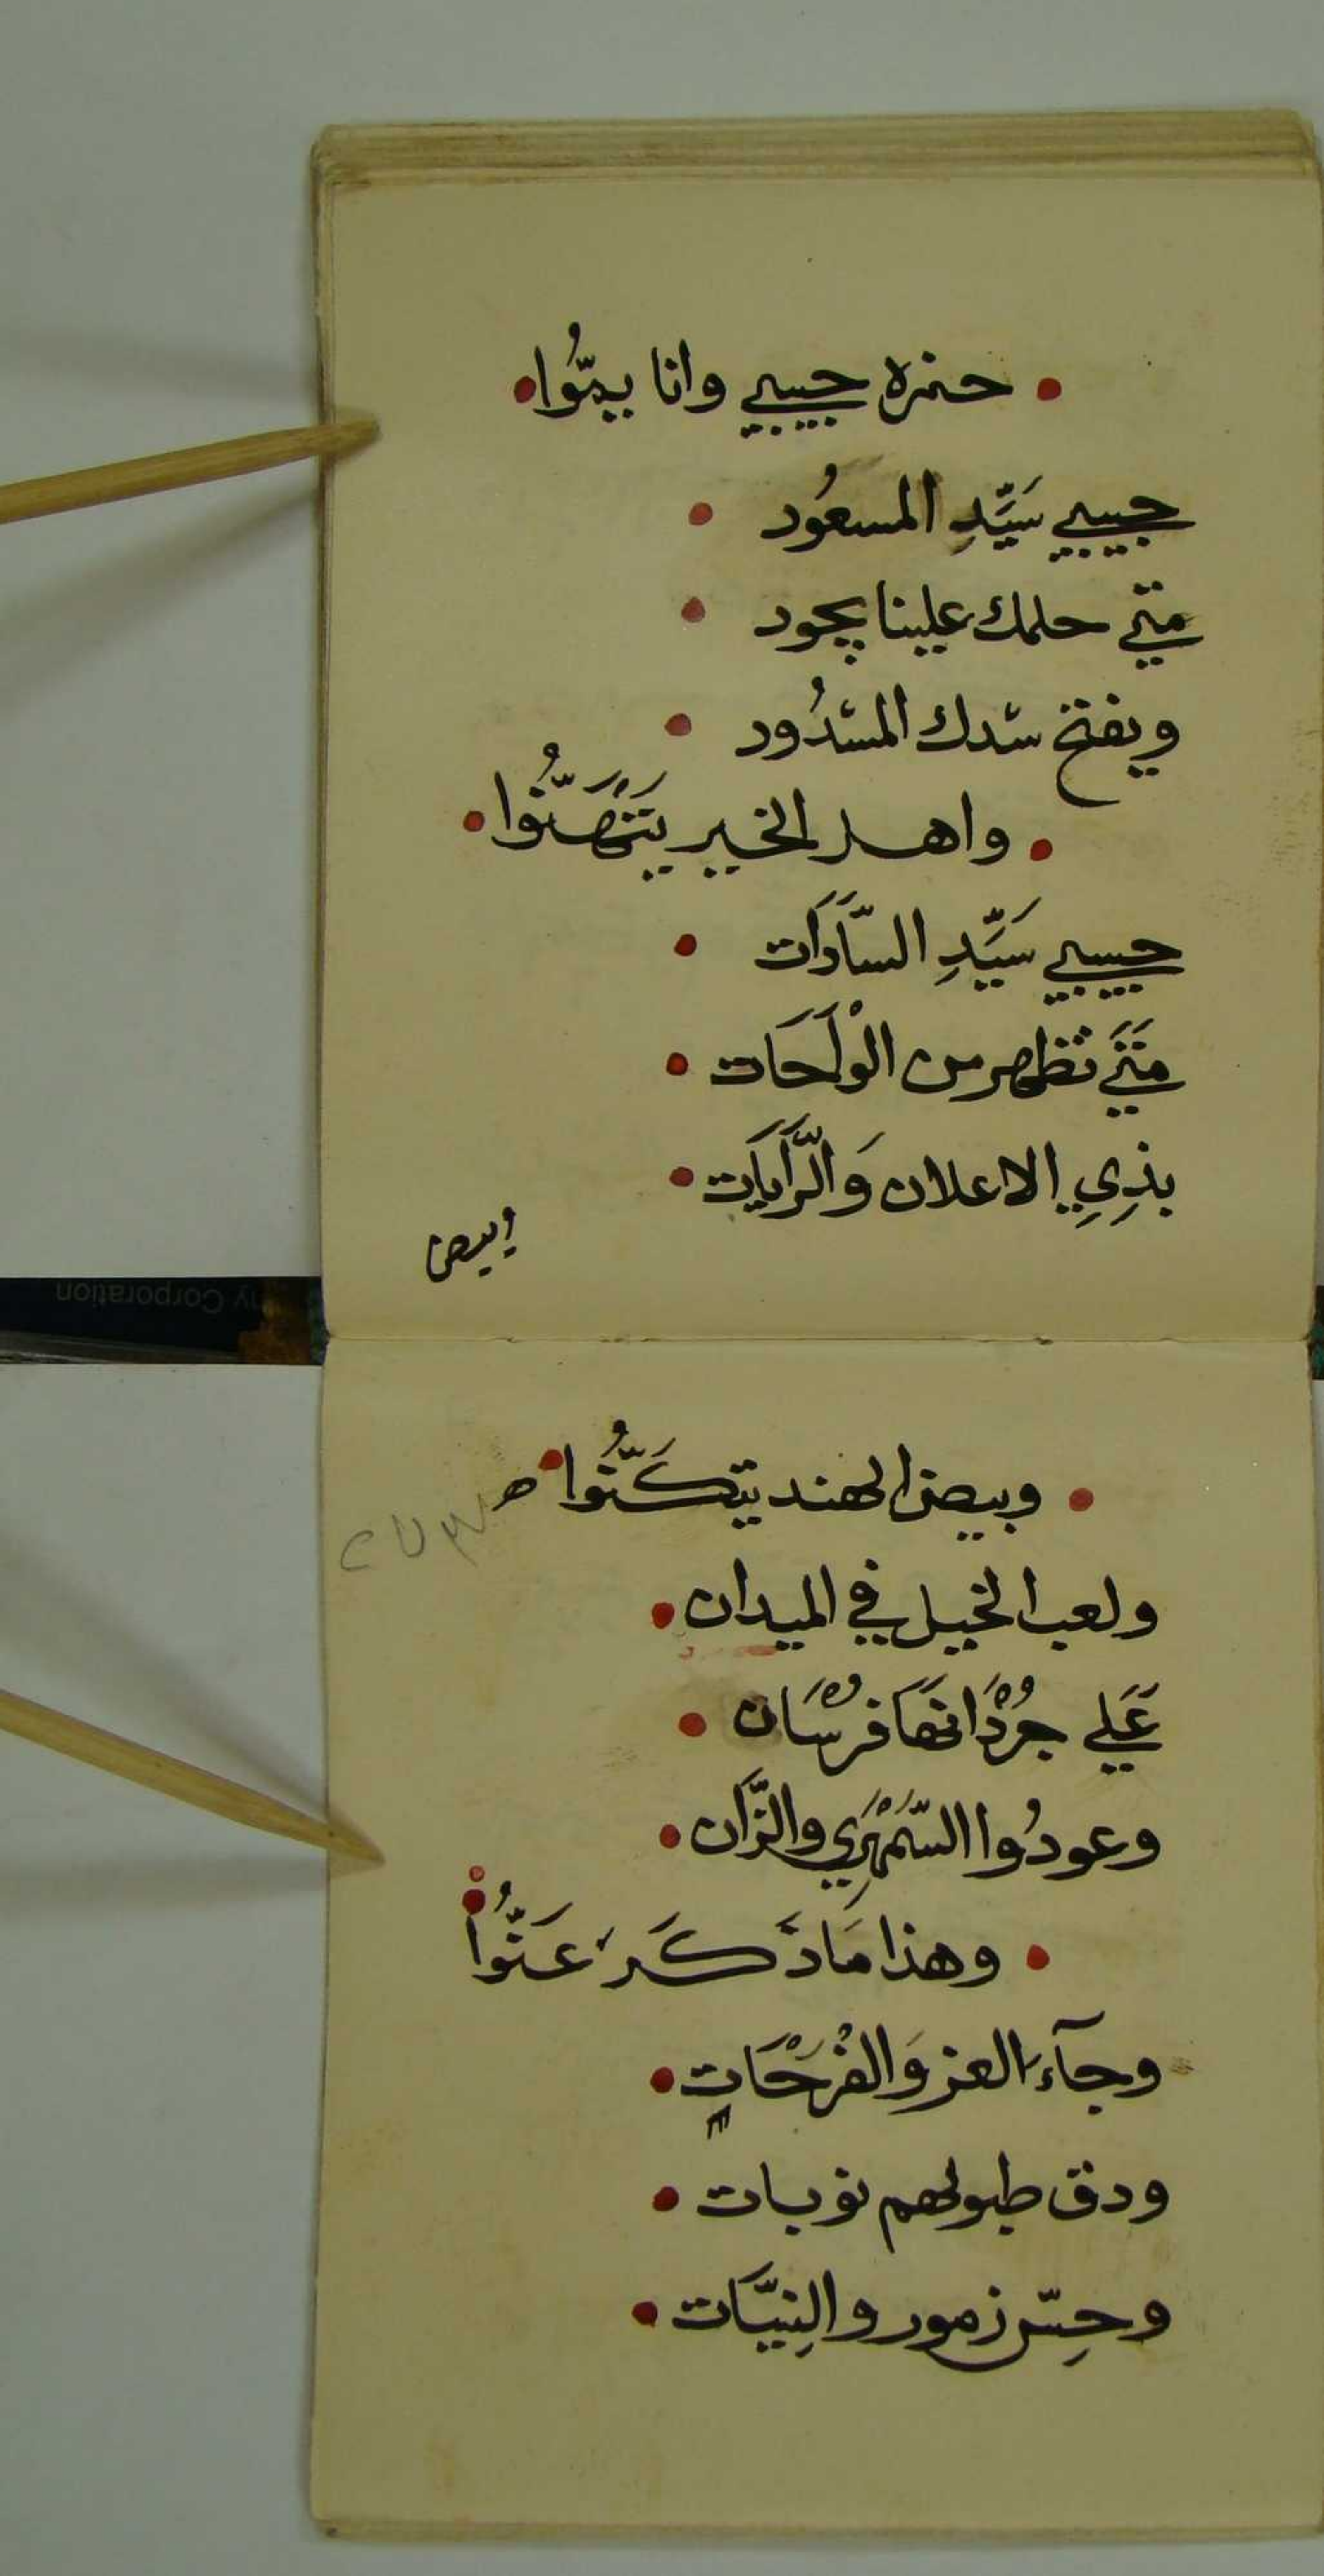 • حمزه حبيبي وانا بيمّوُا •
حبيبي سَيِّدِ المسعُود •
متي حلمك علينا يجود •
ويفتح سدك المسدُود •
• واهل الخير يَتَهَنُّوا •
حبيبي سَيِّدِ السَّادَات •
مَتَي تظهر من الْوَاحَات •
بذِيِ الاعلان وَالرَّايَات •
• وبيض الهند يتكَنُّوا •
ولعب الخيل في الميدان •
عَلَي جُرْدَانهَا فُرْسَان •
وعودُوا السَّمْهَرِي والزَّان •
• وهذا مَا ذَكَرَ عَنُّوا
وجآءَ العز وَالفَرْحَات •
ودق طبولهم نوبات •
وحِسّ زمور والنِيَّات •